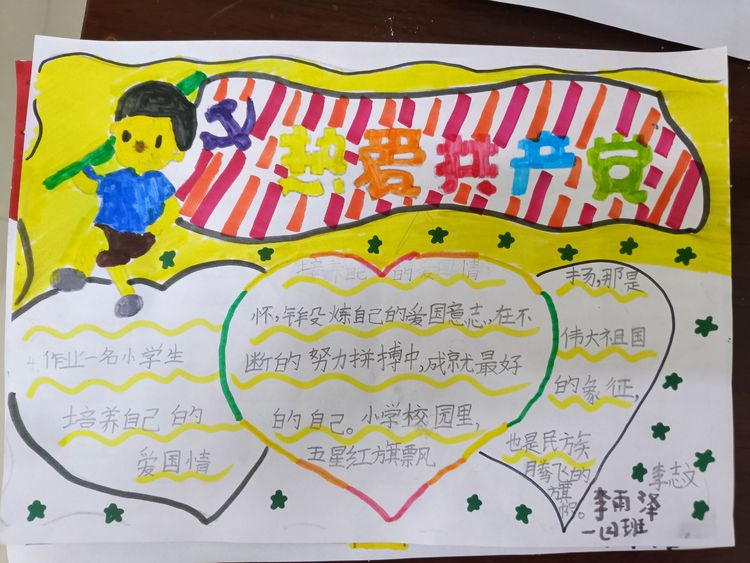 热爱共产党
4.作业一名小学生
培养自己的
爱国情
培养自己的爱国情
怀,锻炼自己的爱国意志,在不
断的努力拼搏中,成就最好
的自己。小学校园里,
五星红旗飘风
扬,那是
伟大祖国
的象征,
也是民族
腾飞的
旗
帜。
李志文
李雨泽
一四班